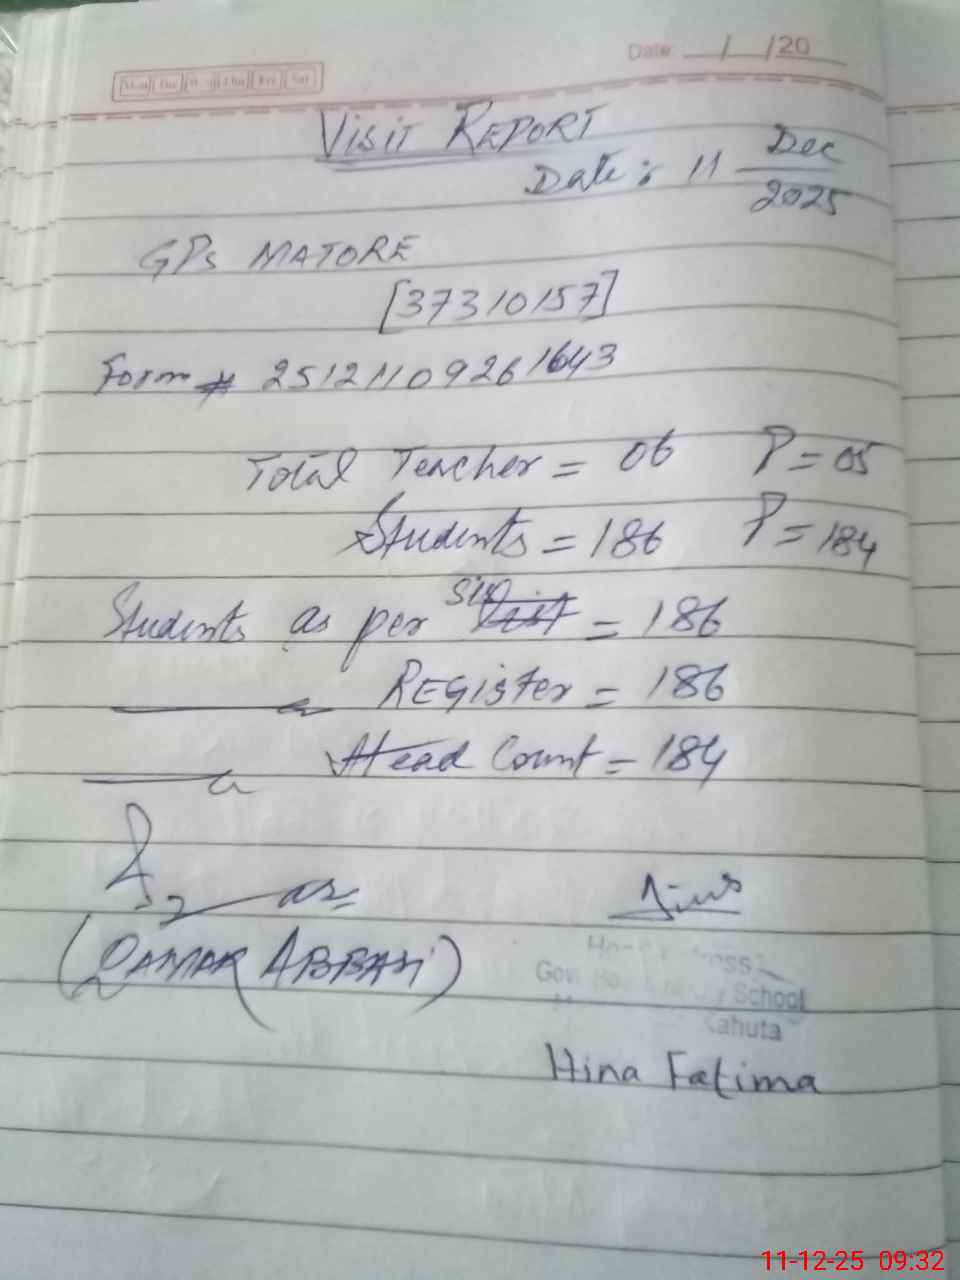 Date: __/__/20__
Mon Tue Wed Thu Fri Sat
VISIT REPORT
Date: 11 Dec 2025
GPS MATORE
[37310157]
Form # 2512110926 1643
Total Teacher = 06 P = 05
Students = 186 P = 184
Students as per SIS = 186
REGister = 186
Head Count = 184
(QAMAR ABBASI)
School
Kahuta
Hina Fatima
11-12-25 09:32